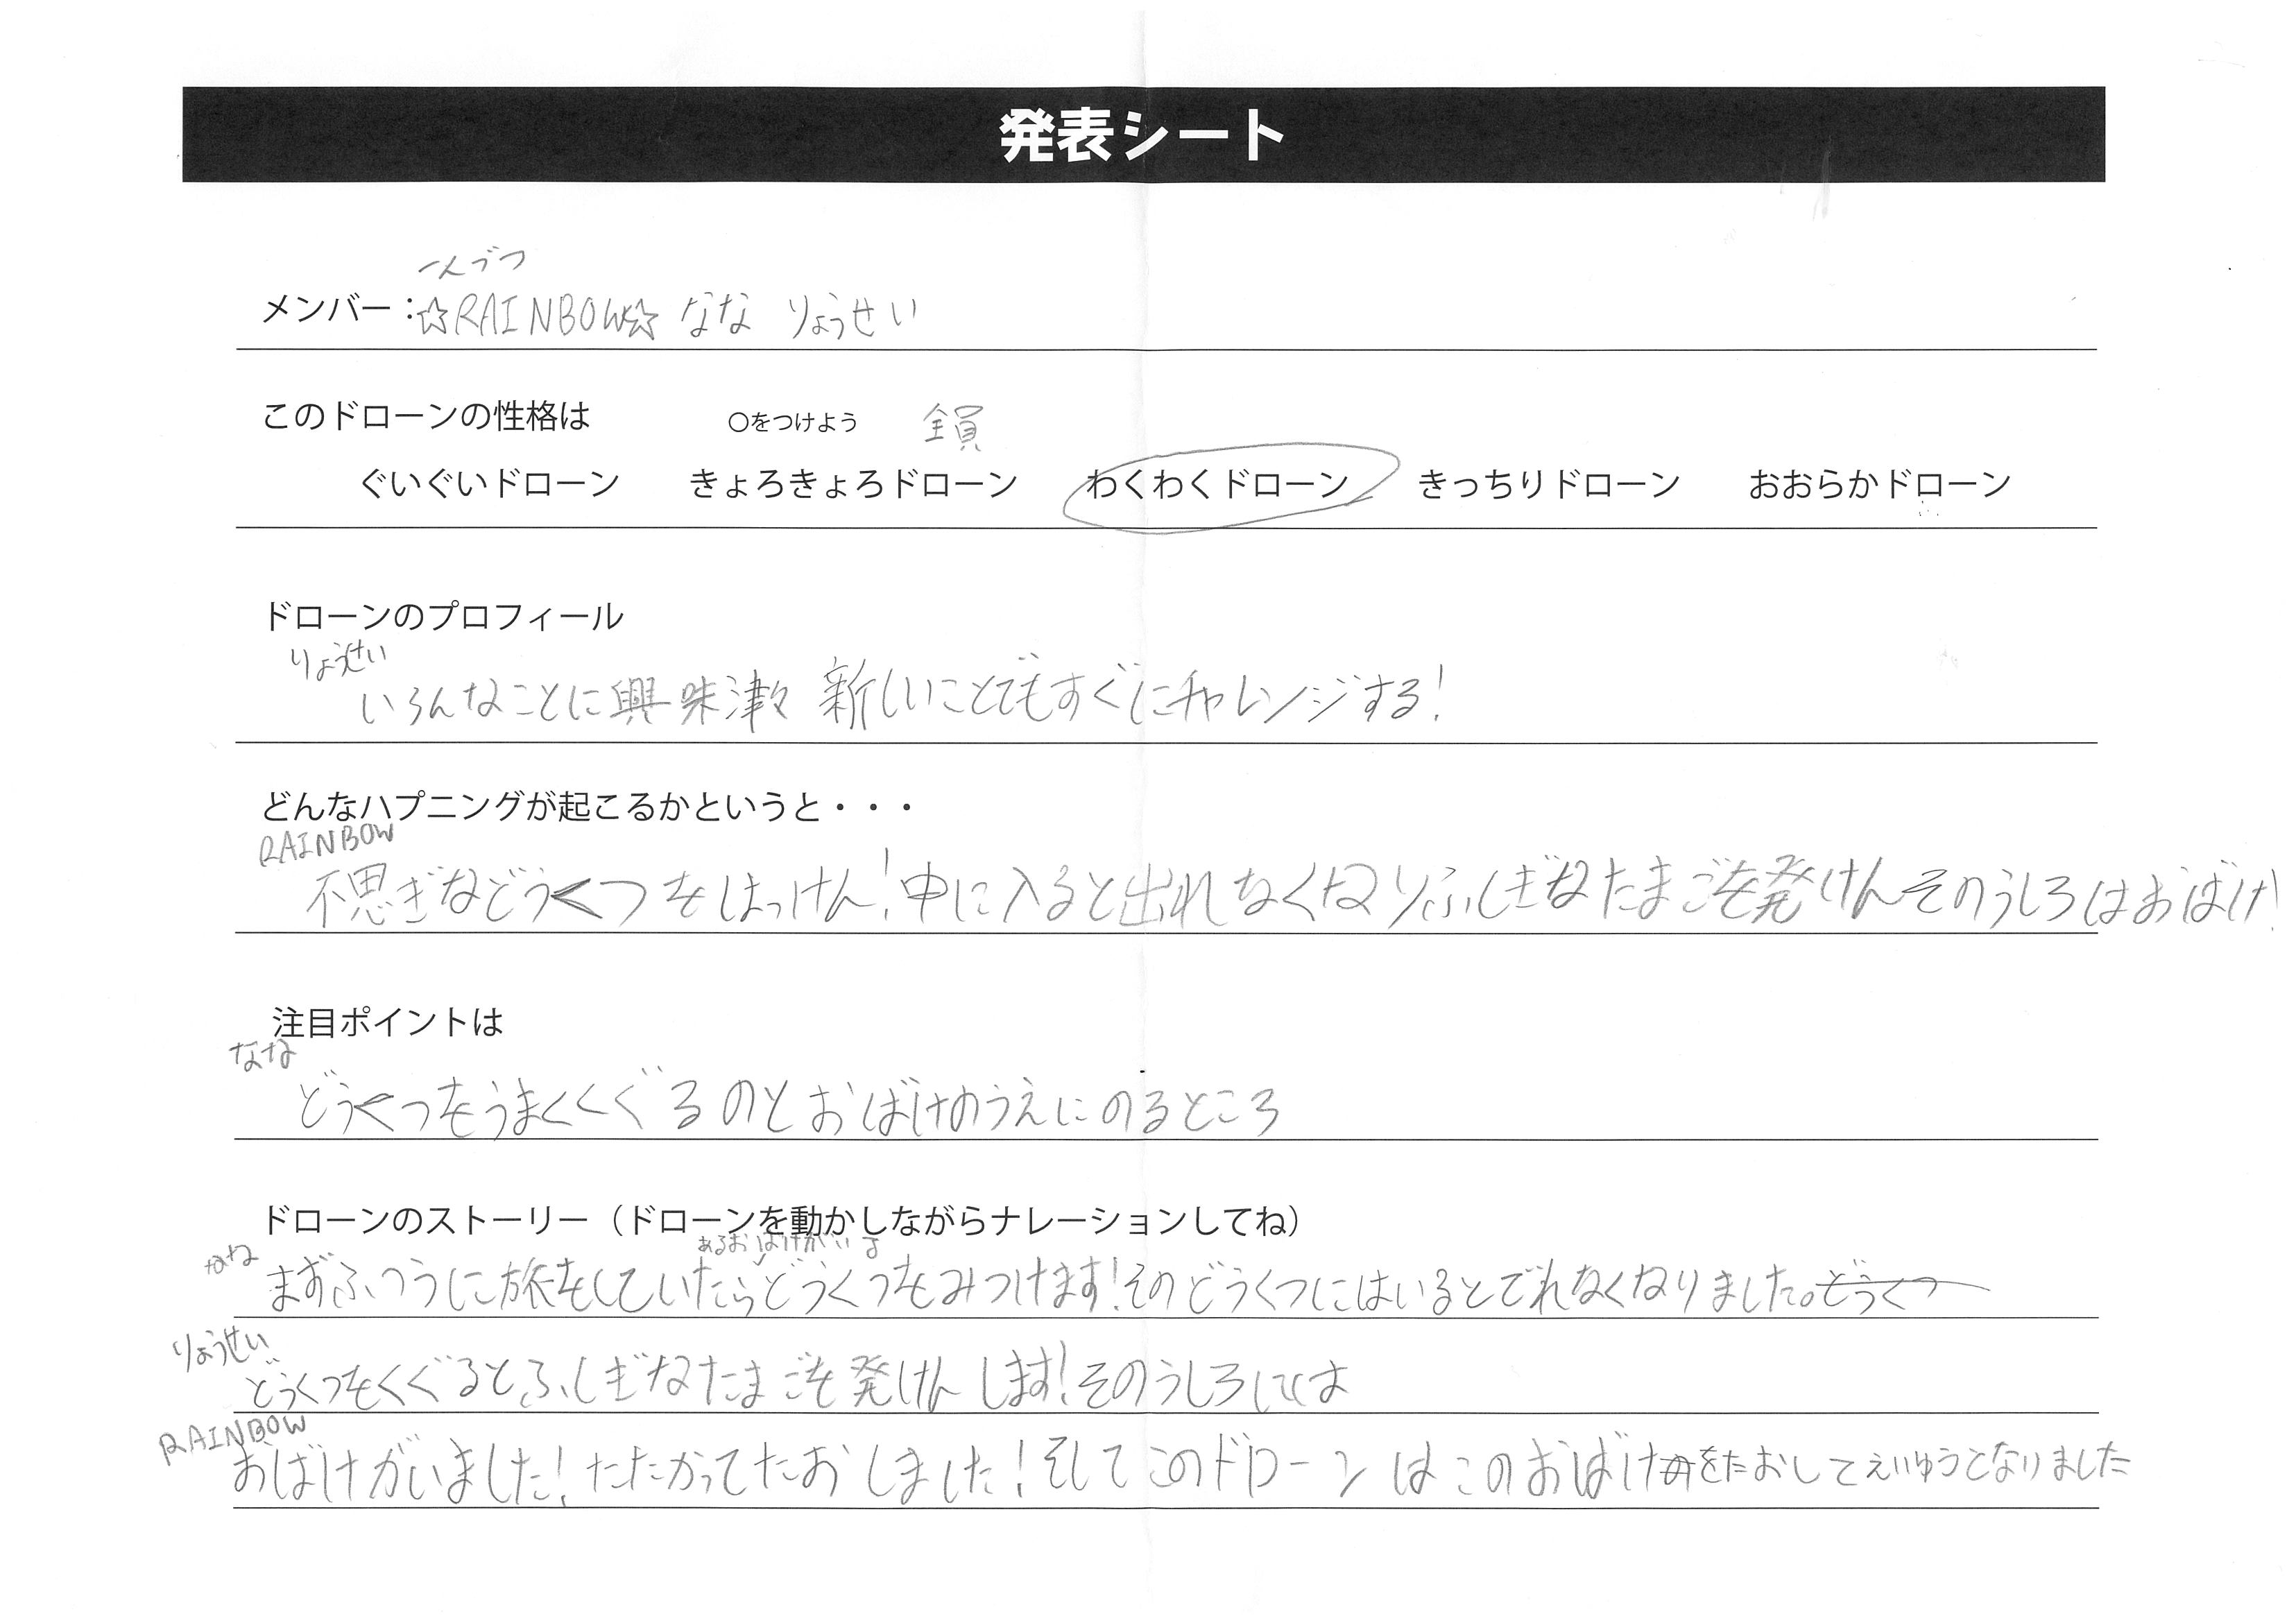 発表シート
一人づつ
メンバー：☆RAINBOW☆ なな りょうせい
このドローンの性格は 〇をつけよう 全員
ぐいぐいドローン きょろきょろドローン わくわくドローン きっちりドローン おおらかドローン
ドローンのプロフィール
りょうせい
いろんなことに興味津々 新しいことでもすぐにチャレンジする!
どんなハプニングが起こるかというと・・・
RAINBOW
不思ぎなどうくつをはっけん!中に入ると出れなくなりふしぎなたまごを発けんそのうしろはおばけ!
注目ポイントは
なな
どうくつをうまくくぐるのとおばけのうえにのるところ
ドローンのストーリー（ドローンを動かしながらナレーションしてね）
なな
まずふつうに旅をしていたらどうくつをみつけます!そのどうくつにはいるとでれなくなりました。どうくつ
りょうせい
どうくつをくぐるとふしぎなたまごを発けんします!そのうしろには
RAINBOW
おばけがいました!たたかってたおしました!そしてこのドローンはこのおばけをたおしてえいゆうとなりました